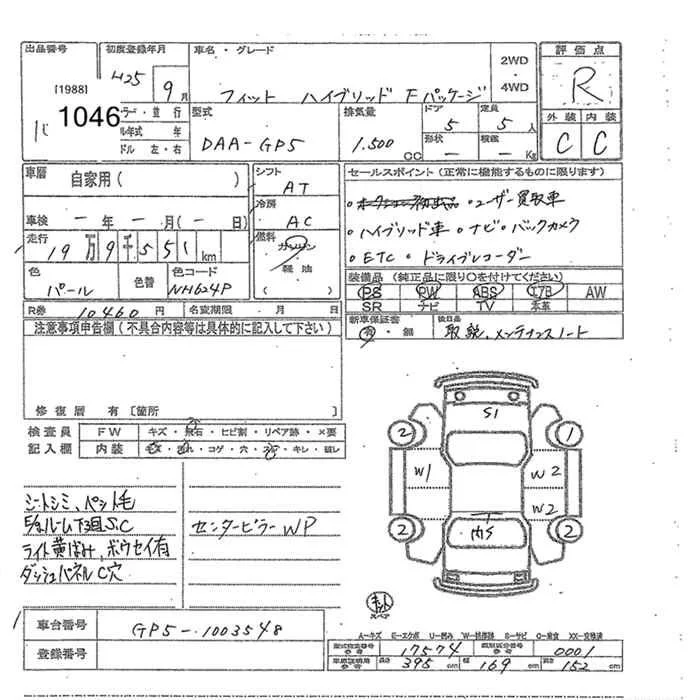 出品番号 初度登録年月 車名・グレード 2WD・4WD 評価点
[1988]
1046
H25 9月 フィット ハイブリッド Fパッケージ R
型式 排気量 ドア 定員 外装 内装
DAA-GP5 1.500 CC 5 5人 C C
年式 年 形状 ー 積載 ー Kg
ドル 左・右
車歴 自家用( ) シフト AT セールスポイント(正常に機能するものに限ります)
冷房 AC ・ユーザー買取車
車検 ー年ー月(ー日) ・ハイブリッド車 ・ナビ・バックカメラ
走行 19万9千551km 燃料 ガソリン 軽油 ・ETC ・ドライブレコーダー
色 パール 色替 色コード NH624P 装備品(純正品に限り○を付けてください)
PS PW ABS エアB AW
SR ナビ TV 本革
R券 10460円 名変期限 月 日 新車保証書 有・無 後日品 取説、メンテナンスノート
注意事項申告欄(不具合内容等は具体的に記入して下さい)
修復歴 有[箇所 ]
検査員 FW キズ・飛石・ヒビ割・リペア跡・×要
記入欄 内装 コゲ・穴 キレ・破レ
シートシミ、ペット毛
ライト黄ばみ、ボウセイ有 センターピラーWP
ダッシュパネルC穴
S1
2 1
W1 W2
W2
2 内S 2
スペア
車台番号 GP5-1003548
登録番号
A-キズ E-エクボ U-凹み S-サビ XX-交換済
型式指定番号 参考 17574 類別区分番号 参考 0001
長さ 395cm 幅 169cm 高さ 152cm